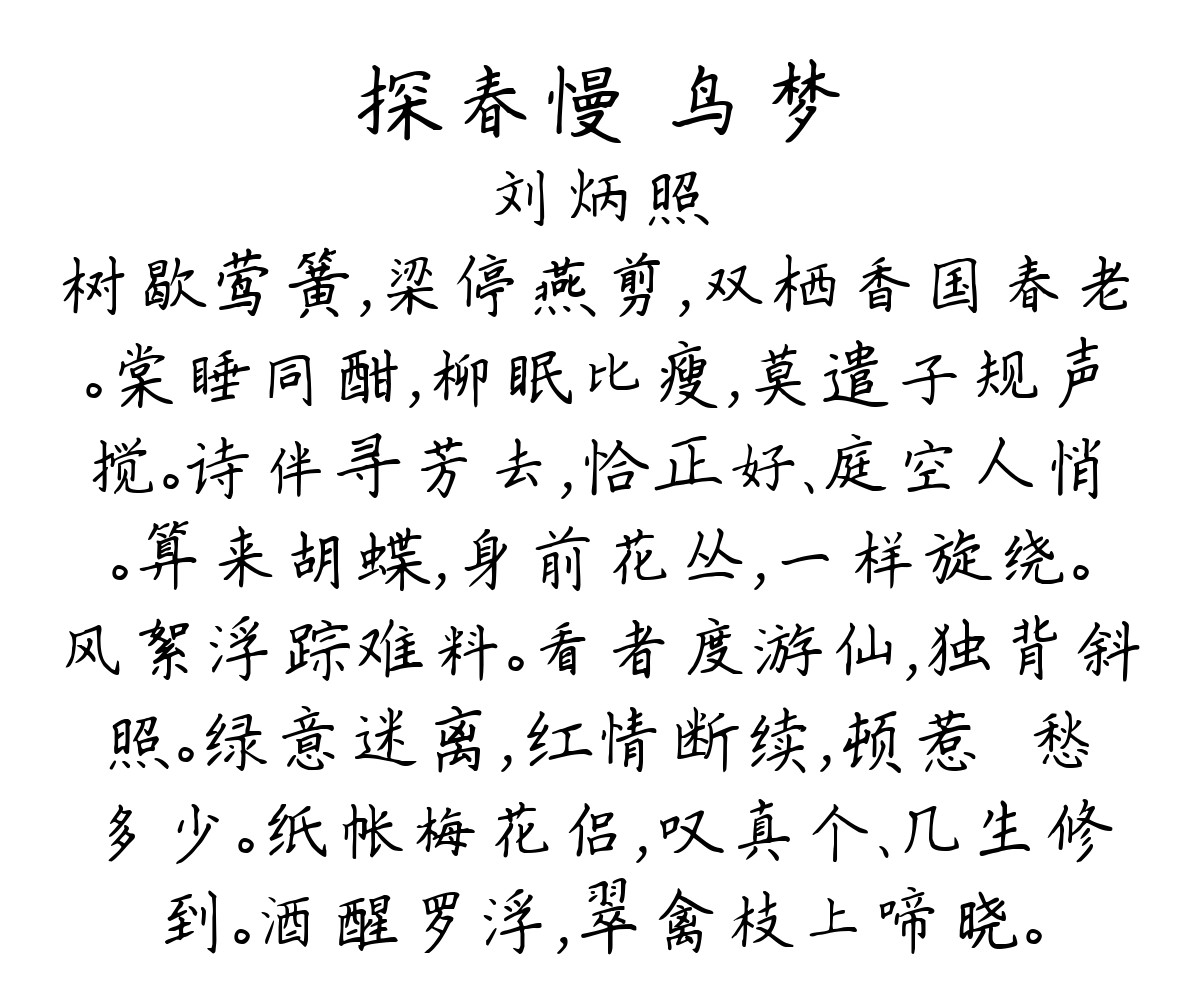 探春慢 鸟梦
刘炳照
树歇莺簧,梁停燕剪,双栖香国春老
。棠睡同酣,柳眠比瘦,莫遣子规声
搅。诗伴寻芳去,恰正好、庭空人悄
。算来胡蝶,身前花丛,一样旋绕。
风絮浮踪难料。看者度游仙,独背斜
照。绿意迷离,红情断续,顿惹 愁
多少。纸帐梅花侣,叹真个、几生修
到。酒醒罗浮,翠禽枝上啼晓。